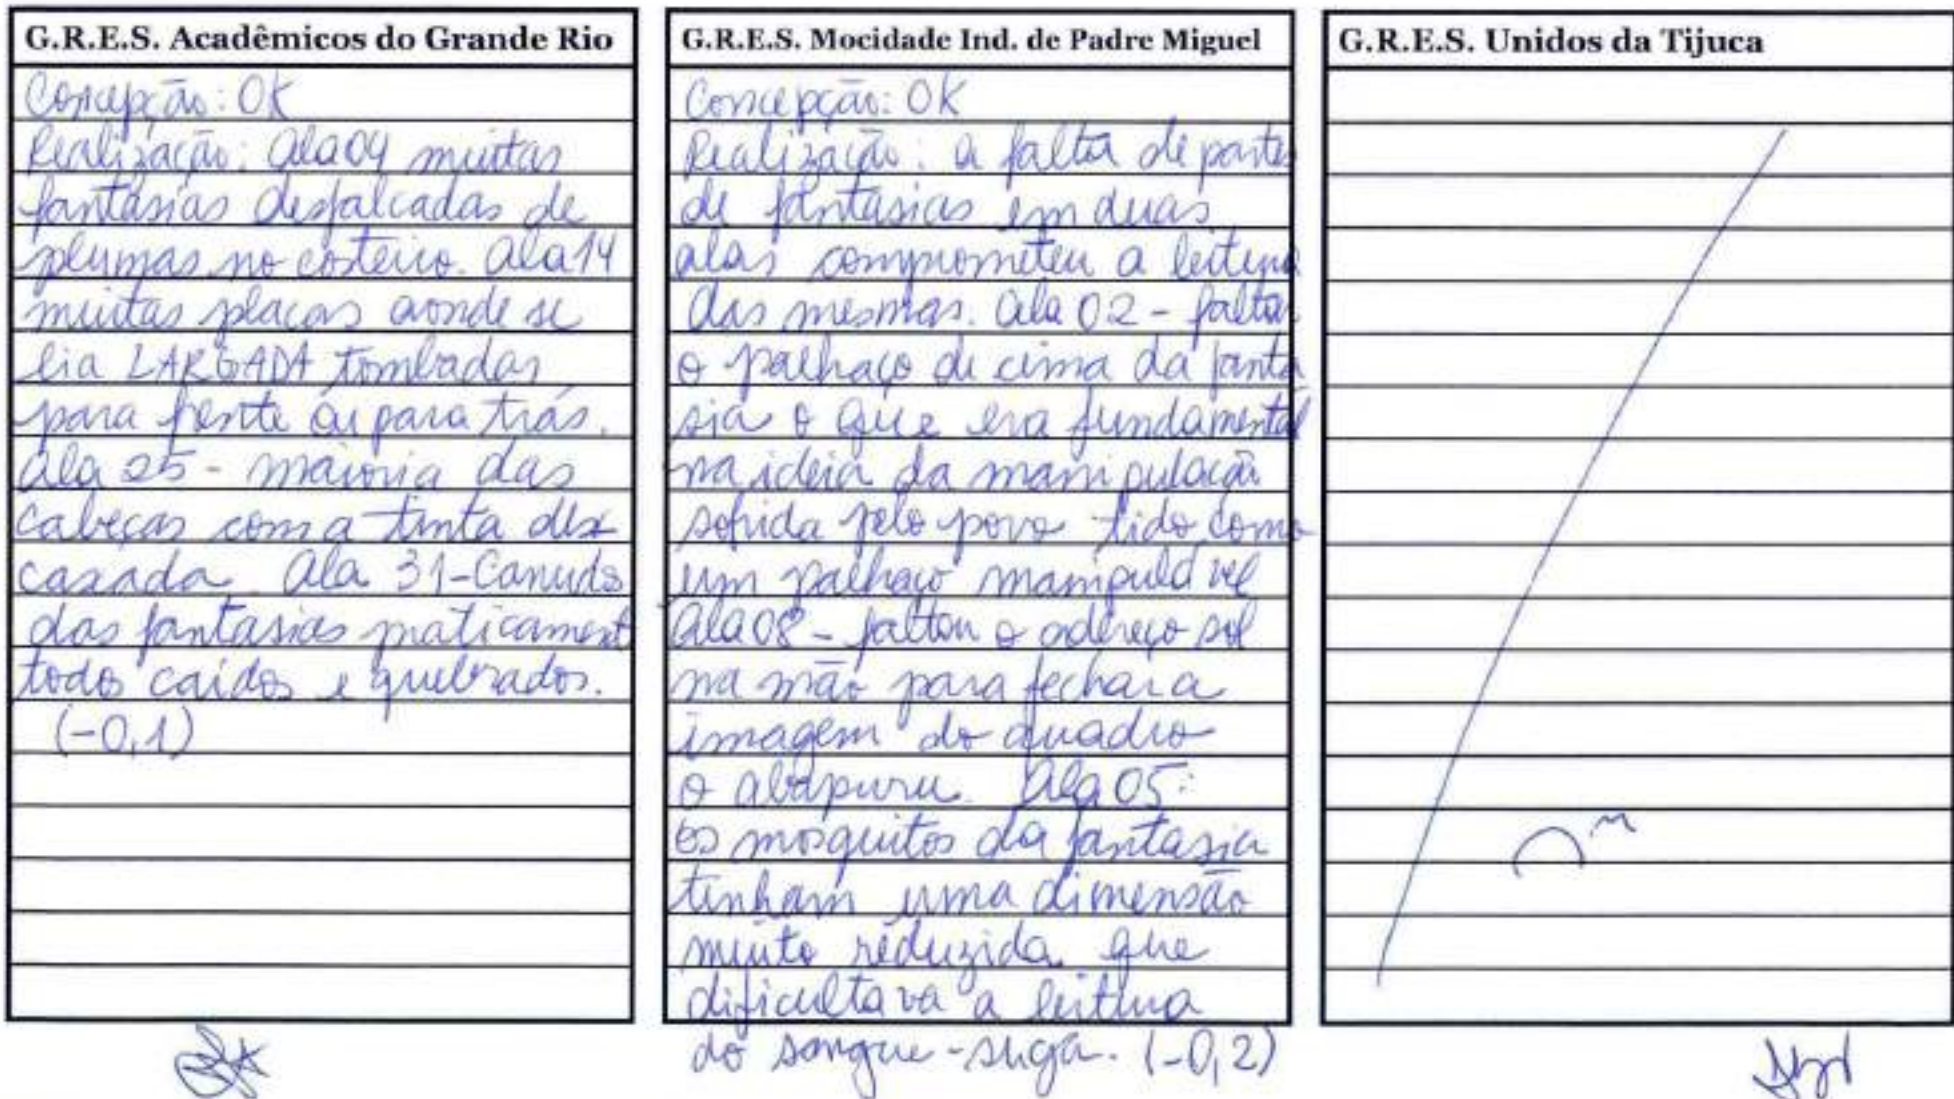 G.R.E.S. Acadêmicos do Grande Rio
Concepção: OK
Realização: Ala 04 muitas
fantasias desfalcadas de
plumas no costeiro. Ala 14
muitas placas aonde se
lia LARGADA tombadas
para frente ou para trás.
Ala 25 - maioria das
cabeças com a tinta des
cascada. Ala 31-Canudos
das fantasias praticament
todo caídos e quebrados.
(-0,1)
G.R.E.S. Mocidade Ind. de Padre Miguel
Concepção: OK
Realização: a falta de partes
de fantasias em duas
alas comprometeu a leitura
das mesmas. Ala 02 - faltou
o palhaço de cima da fanta
sia o que era fundamental
na ideia da manipulação
sofrida pelo povo tido como
um palhaço manipulável
Ala 08 - faltou o adereço sol
na mão para fechar a
imagem do quadro
o abapuru. Ala 05:
os mosquitos da fantasia
tinham uma dimensão
muito reduzida que
dificultava a leitura
do sangue-suga. (-0,2)
G.R.E.S. Unidos da Tijuca